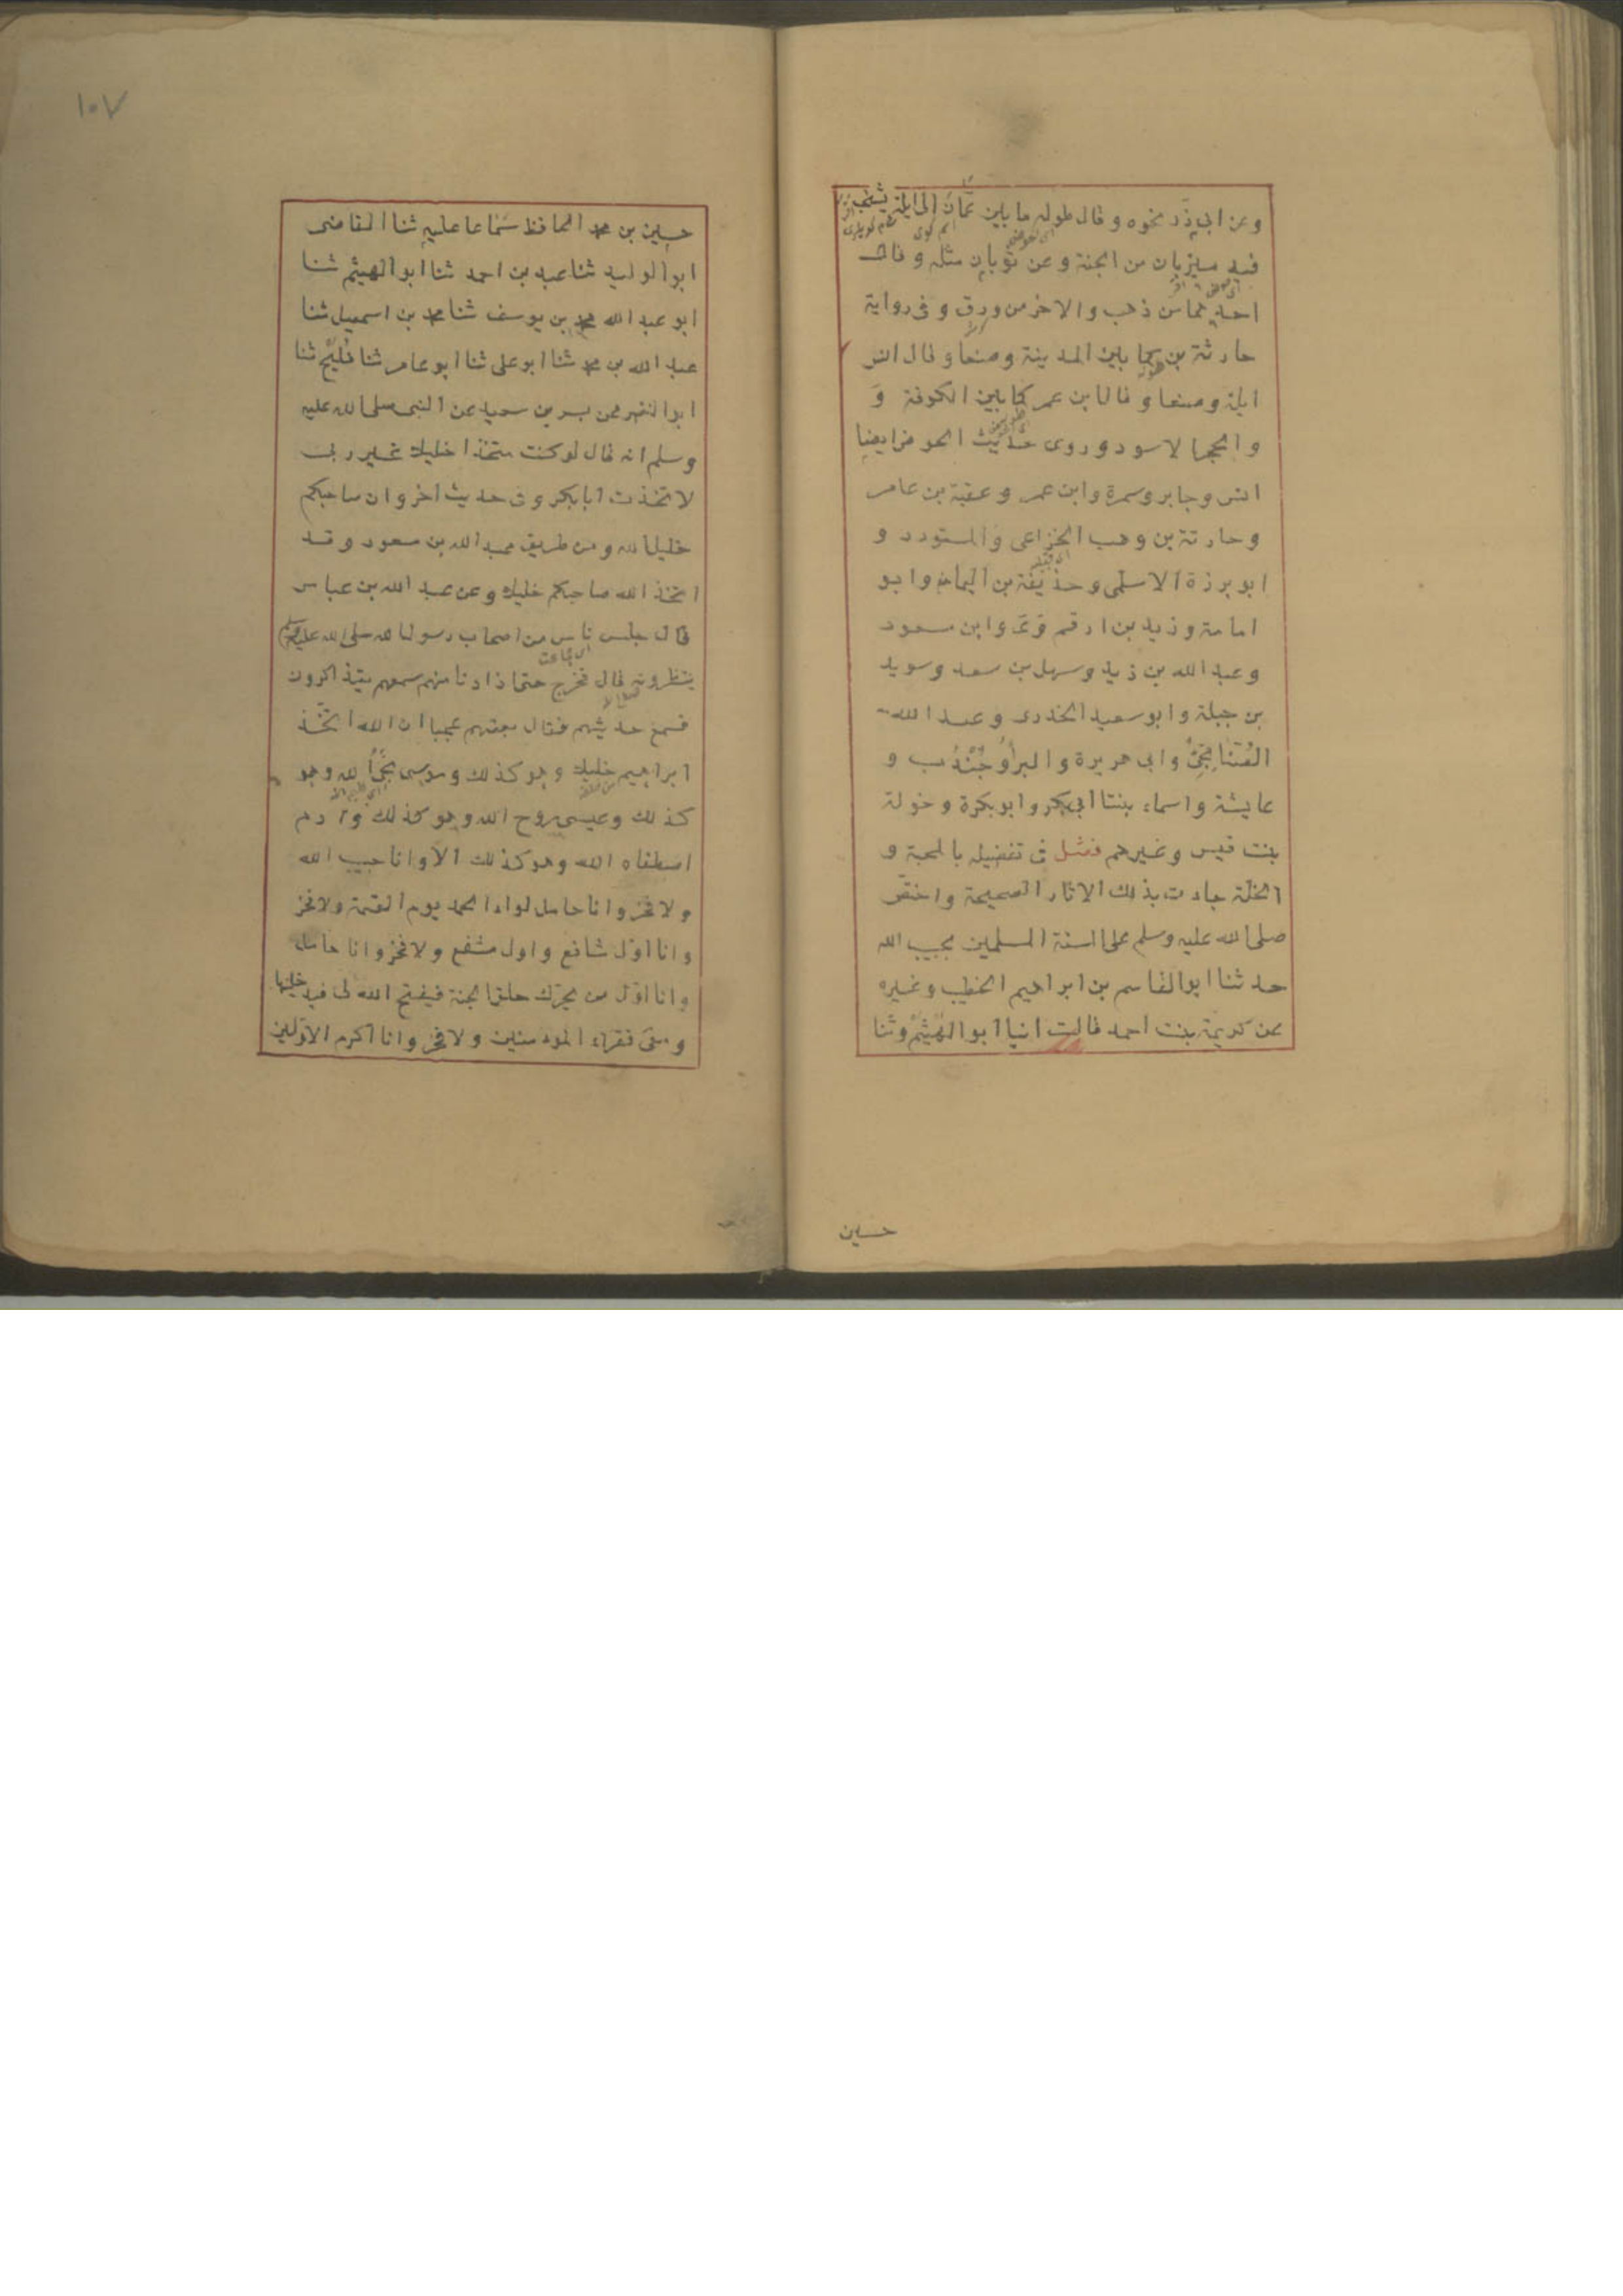 وعن ابي ذر نحوه وقال طوله ما بين عمان الى ايلة يشخب
فيه ميزبان من الجنة وعن ثوبان مثله وقال
احدهما من ذهب والاخر من ورق وفى رواية
حارثة بن كما بين المدينة وصنعا وقال انس
ايلة وصنعا وقال ابن عمر كما بين الكوفة و
والحجر الاسود وروى حديث الحوض ايضا
انس وجابر وسمرة وابن عمر وعقبة بن عامر
وحارثة بن وهب الخزاعى والمستورد و
ابو برزة الاسلمى وحذيفة بن اليمان وابو
امامة وزيد بن ارقم وابن مسعود
وعبد الله بن زيد وسهل بن سعد وسويد
بن جبلة وابو سعيد الخدرى وعبد الله
الصُنَابِحِىُّ وابى هريرة والبرأ وجُنْدُب و
عايشة واسماء بنتا ابى بكر وابو بكرة وخولة
بنت قيس وغيرهم فصل فى تفضيله بالمحبة و
الخلة جاءت بذلك الاثار الصحيحة واختص
صلى الله عليه وسلم على السنة المسلمين بحبيب الله
حدثنا ابو القاسم بن ابراهيم الخطيب وغيره
عن كريمة بنت احمد قالت انبا ابو الهَيْثَم وثنا
حسين
١٠٧
حسين بن محمد الحافظ سماعا عليه ثنا القاضى
ابو الوليد ثنا عبد بن احمد ثنا ابو الهيثم ثنا
ابو عبد الله محمد بن يوسف ثنا محمد بن اسمعيل ثنا
عبد الله بن محمد ثنا ابو على ثنا ابو عامر ثنا فُلَيْح ثنا
ابو النضر عن بسر بن سعيد عن النبى صلى الله عليه
وسلم انه قال لو كنت متخذا خليلا غير ربى
لاتخذت ابا بكر وفى حديث اخر وان صاحبكم
خليل الله ومن طريق عبد الله بن مسعود وقد
اتخذ الله صاحبكم خليلا وعن عبد الله بن عباس
قال جلس ناس من اصحاب رسول الله صلى الله عليه وسلم
ينتظرونه قال فخرج حتى اذا دنا منهم سمعهم يتذاكرون
فسمع حديثهم فقال بعضهم عجبا ان الله اتخذ
ابراهيم خليلا وهو كذلك وموسى نجىُّ الله وهو
كذلك وعيسى روح الله وهو كذلك وآدم
اصطفاه الله وهو كذلك الا وانا حبيب الله
ولا فخر وانا حامل لواء الحمد يوم القيمة ولا فخر
وانا اول شافع واول مشفع ولا فخر وانا حامل
وانا اول من يحرك حلق الجنة فيفتح الله لى فيدخلنيها
ومعى فقراء المؤمنين ولا فخر وانا اكرم الاولين